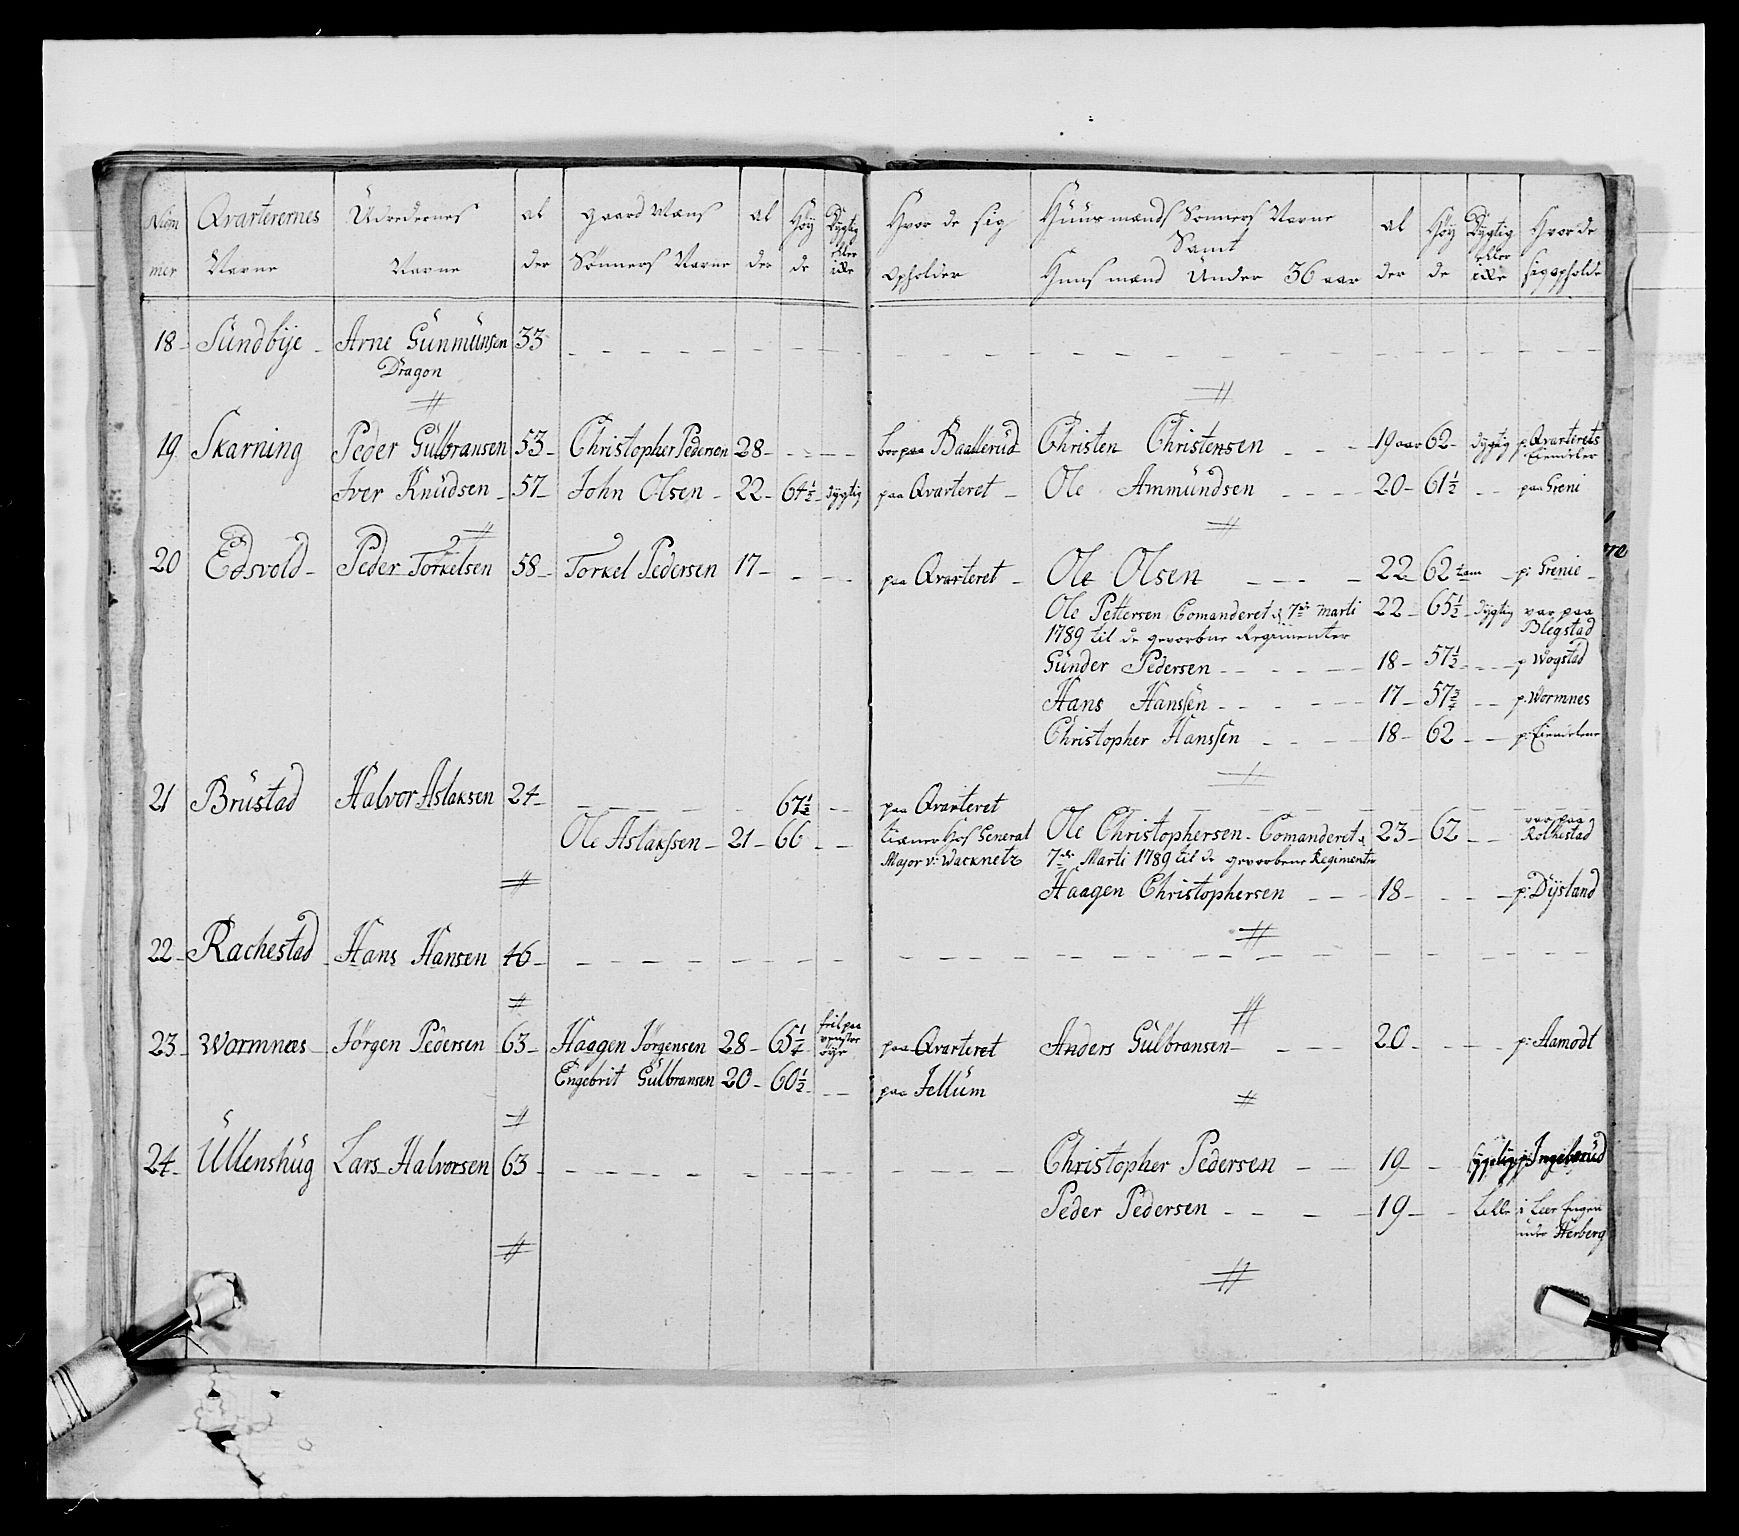 Num mer | Qvarterernes Navne | Udredernes Navne | al der | gaard Mæns Sønners Navne | al der | Høy de | Dygtig eller ikke | Hvor de sig opholder | Huusmænds Sønners Navne Samt Huusmænd Under 36 aar | al der | Høy de | Dygtig eller ikke | Hvor de sig opholde
18 Sundbye Arne Gunmunsen 33
Dragon
19 Skarning Peder Gulbransen 53 Christopher Pedersen 28 boe paa Baallerud Christen Christensen 19 aar 62 dygtig p. Qvarterets Eiendeler
Iver Knudsen 57 John Olsen 22 64½ dygtig paa Qvarteret Ole Ammundsen 20 61½ paa Greni
20 Edsvold Peder Torkelsen 58 Torkel Pedersen 17 paa Qvarteret Ole Olsen 22 62 p: Grenie
Ole Pettersen Comanderet d. 7de Marti 22 65½ dygtig var paa
1789 til de gevorbne Regimenter Blegstad
Gunder Pedersen 18 57½ p Wogstad
Hans Hanssen 17 57¾ p. Wormnes
Christopher Hanssen 18 62 p.
21 Brustad Halvor Aslaksen 24 67½ paa Qvarteret
Ole Aslakssen 21 66 tienner Hos General Ole Christophersen Comanderet d. 23 62 var paa
Major v: Wacknetz 7de Marti 1789 til de gevorbene Regimente Rolhestad
Haagen Christophersen 18 p: Dystand
22 Rachestad Hans Hansen 46
23 Wormnæs Jørgen Pedersen 63 Haagen Jørgensen 28 65¼ feil paa venster øye paa Qvarteret Anders Gulbransen 20 p: Aamodt
Engebrit Gulbransen 20 60½ paa Jellum
24 Ullenshug Lars Halvorsen 63 Christopher Pedersen 19 p: Ingelsrud
Peder Pedersen 19 Lille i Leer Engen
under Herberg